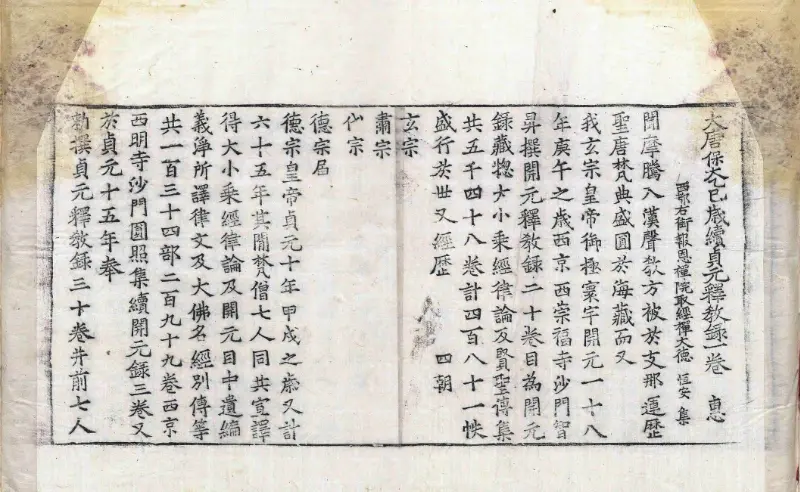 大唐保大乙巳歲續貞元釋教錄一卷 惠
西都右街報恩禪院取經禪大德 恒安 集
聞摩騰入漢聲教方被於支那運歷
聖唐梵典盛圓於海藏而又
我玄宗皇帝御極寰宇開元一十八
年庚午之歲西京西崇福寺沙門智
昇撰開元釋教錄二十卷目為開元
錄藏惣大小乘經律論及賢聖傳集
共五千四十八卷計四百八十一帙
盛行於世又經歷 四朝
玄宗
肅宗
代宗
德宗屆
德宗皇帝貞元十年甲戌之歲又計
六十五年其間梵僧七人同共宣譯
得大小乘經律論及開元目中遺編
義淨所譯律文及大佛名經別傳等
共一百三十四部二百九十九卷西京
西明寺沙門圓照集續開元錄三卷又
於貞元十五年奉
勑撰貞元釋教錄三十卷并前七人